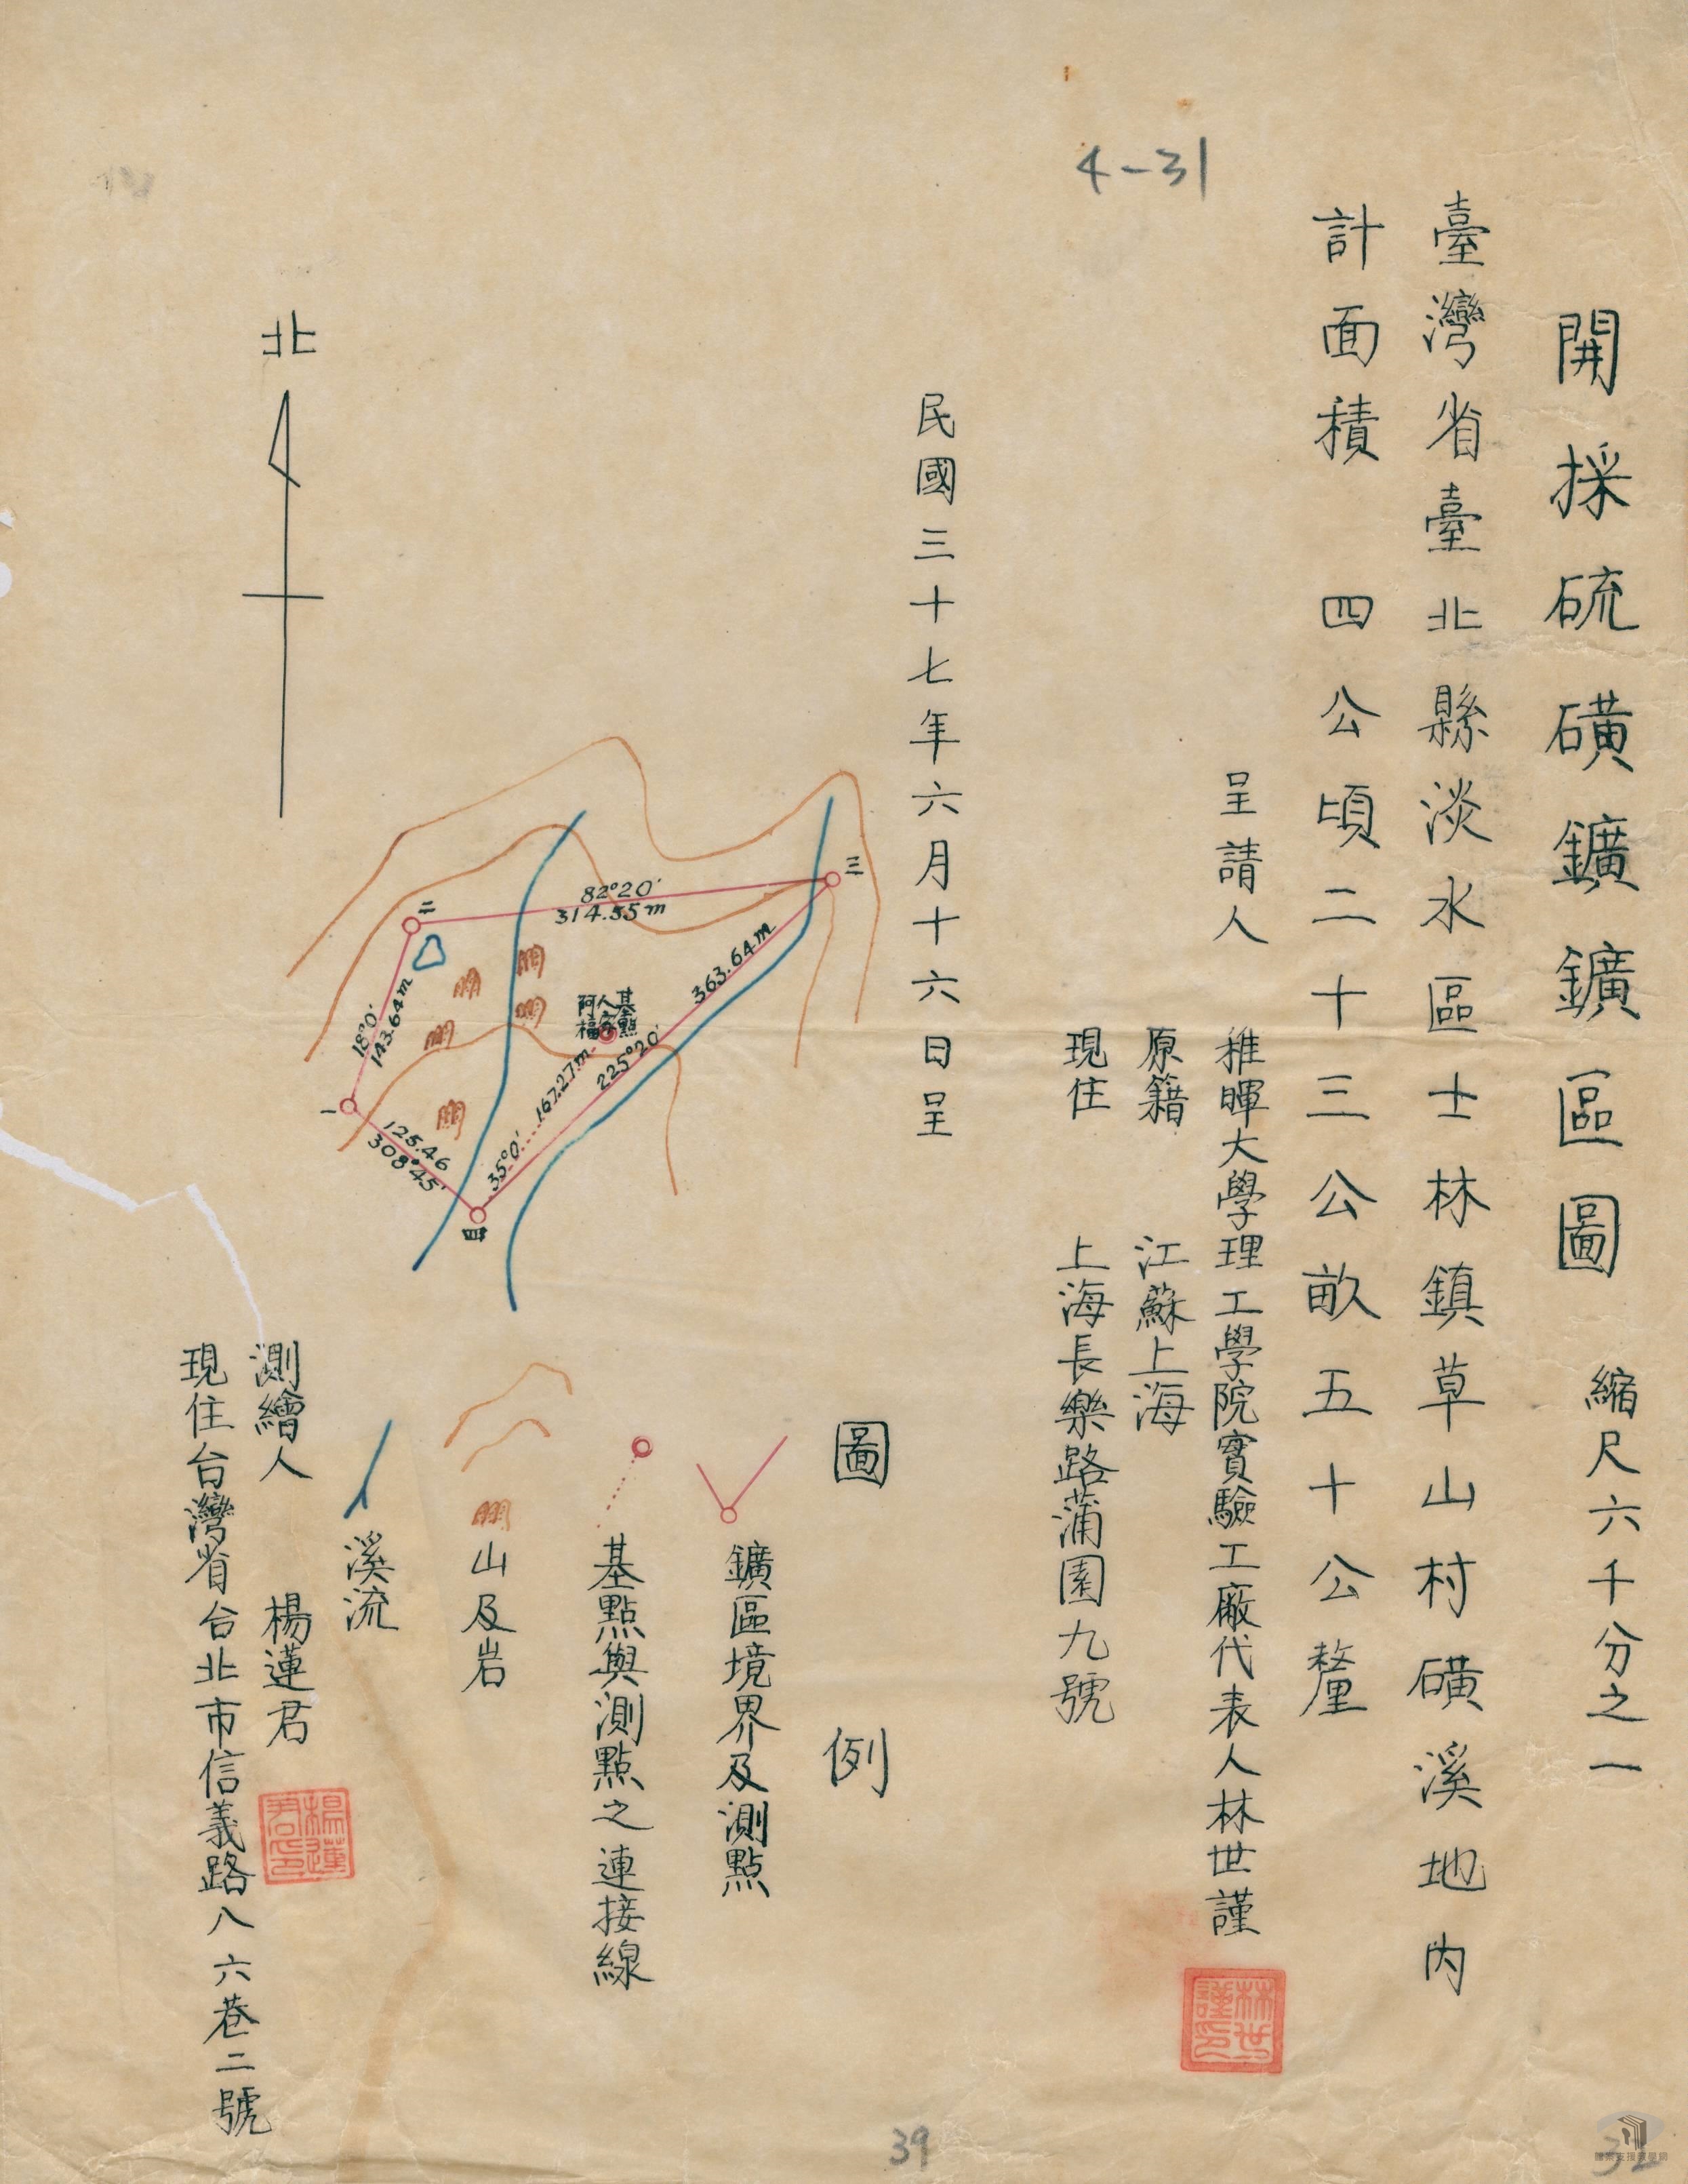 開採硫磺鑛鑛區圖 縮尺六千分之一
臺灣省臺北縣淡水區士林鎮草山村磺溪地內
計面積 四公頃二十三公畝五十公釐
4-31
呈請人 稚暉大學理工學院實驗工廠代表人林世謹
林世謹印
原籍 江蘇上海
現住 上海長樂路蒲園九號
民國三十七年六月十六日呈
北
一
二
三
四
82°20′
314.55m
18°0′
143.64m
125.46
308°45′
363.64m
225°20′
35°0′....167.27m
基點
阿福
圖例
鑛區境界及測點
基點與測點之連接線
山及岩
溪流
測繪人 楊蓮君
楊蓮君印
現住台灣省台北市信義路八六巷二號
39